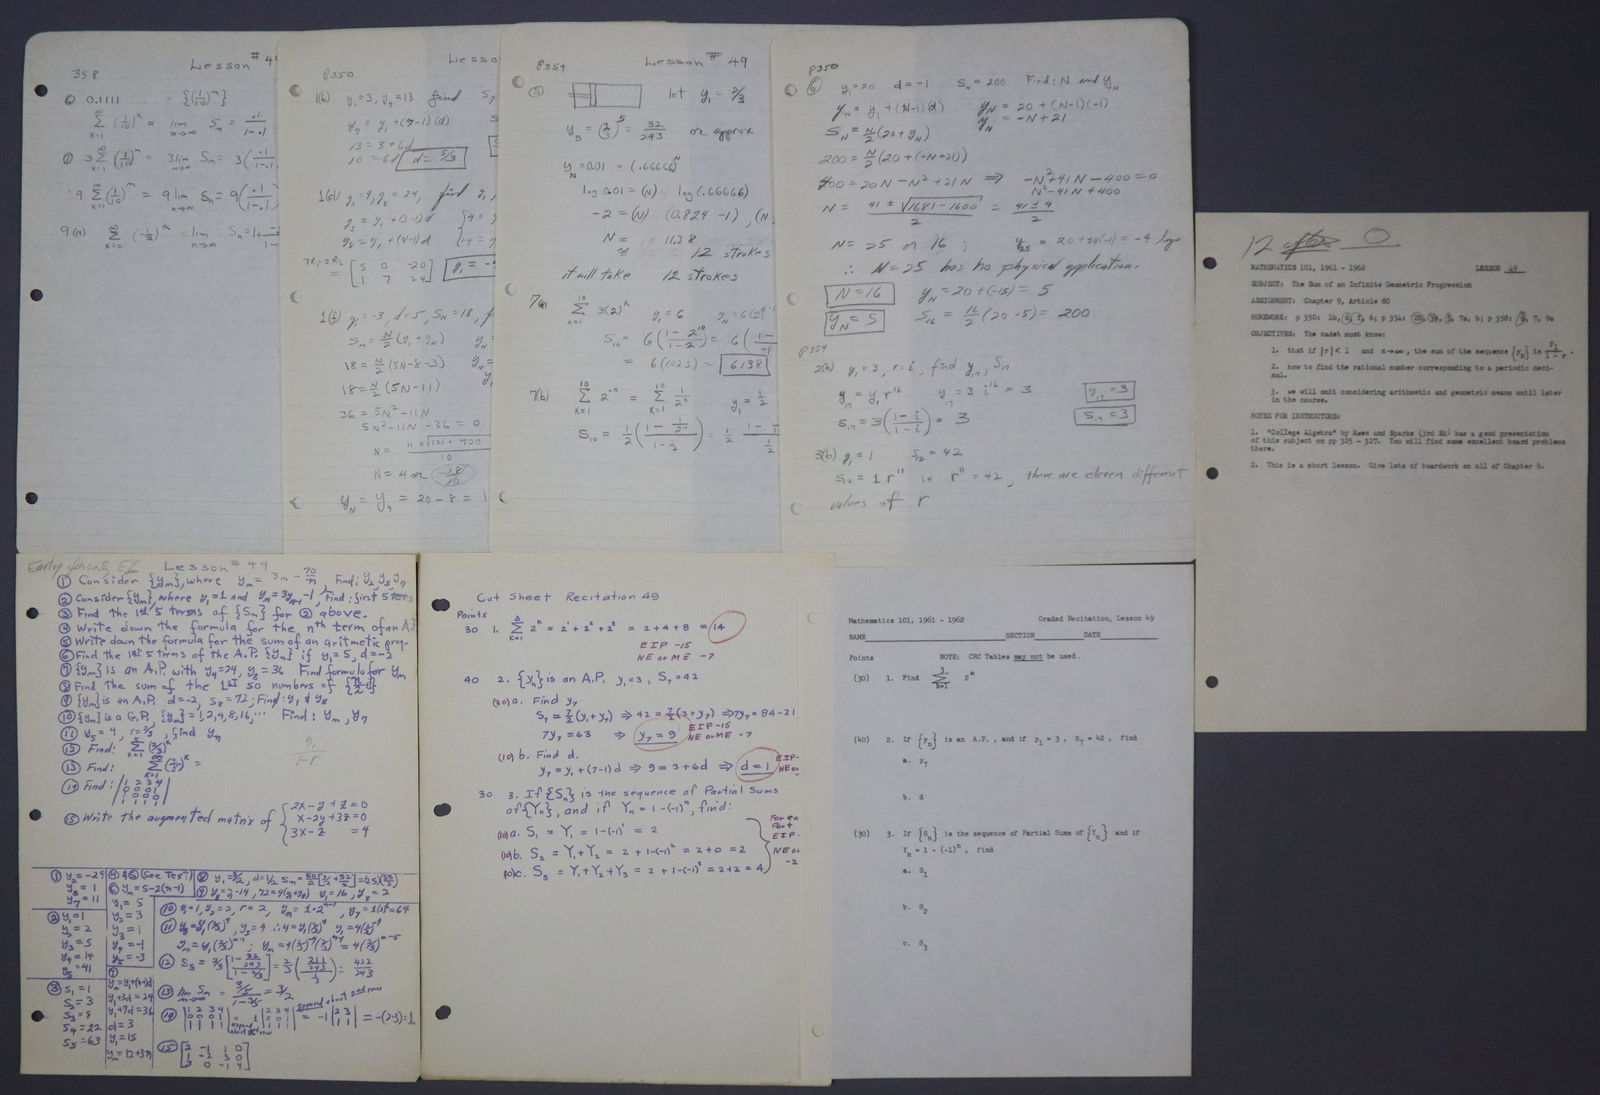 358
Lesson # 49
0.1111 ..... = {(1/10)^n}
∞ Σ K=1 (1/10)^K = lim n→∞ Sn = .1 / 1-.1
⑦ 3 Σ (1/10)^n = 3 lim n→∞ Sn = 3(.1 / 1-.1
9 Σ K=1 (1/10)^n = 9 lim n→∞ Sn = 9(.1 / 1-.1
9(a) ∞ Σ K=0 (-1/3)^K = lim n→∞ Sn =
P350
Lesso
1(b) y1=3, y7=13 find S7
y7 = y1 + (7-1)(d)
13 = 3+6d
10 = 6d d = 5/3
1(d) y3=4, y8=24, find
y3 = y1 + (3-1)d
y8 = y1 + (8-1)d
[5 0 -20
1 7 24] y1 = -
1(f) y1=-3, d=5, SN=18, f
Sm = N/2 (y1+yN)
18 = N/2 (5N-8-3)
18 = N/2 (5N-11)
36 = 5N²-11N
5N²-11N-36 = 0
N = 11 ± √121+720 / 10
N = 4 or -18/10
yN = y4 = 20-8 = 1
P354
Lesson # 49
⑤ let y1 = 2/3
y5 = (2/3)^5 = 32/243 or approx
yN = 0.01 = (.66666)^N
log 0.01 = (N) log(.66666)
-2 = (N) (0.824 -1), (N
N = 11.38
≅ 12 strokes
it will take 12 strokes
7(a) 10 Σ K=1 3(2)^K y1 = 6
S10 = 6(1-2^10 / 1-2) = 6(
= 6(1023) = 6138
7(b) 10 Σ K=1 2^-K = 10 Σ K=1 1/2^K y1 = 1/2
S10 = 1/2 (1 - 1/2^10 / 1 - 1/2) = 1/2
P350
⑥ y1=20 d=-1 SN=200 Find: N and yN
yN = y1 + (N-1)(d) yN = 20 + (N-1)(-1)
SN = N/2 (20+yN) yN = -N+21
200 = N/2 (20+(-N+21))
400 = 20N-N²+21N ⇒ -N²+41N-400=0
N²-41N+400
N = 41 ± √1681-1600 / 2 = 41 ± 9 / 2
N = 25 or 16 ; y25 = 20+24(-1) = -4 logs
∴ N=25 has no physical application.
N=16 yN = 20+(-15) = 5
yN = 5 S16 = 16/2 (20-5) = 200
P354
2(b) y1=3, r=i, find y17, S17
y17 = y1 r^16 y17 = 3 i^16 = 3 y17 = 3
S17 = 3(1-i / 1-i) = 3 S17 = 3
3(b) y1=1 S12=42
S12 = 1 r^11 ie r^11 = 42, there are eleven different
values of r
12 0
MATHEMATICS 101, 1961 - 1962 LESSON 49
SUBJECT: The Sum of an Infinite Geometric Progression
ASSIGNMENT: Chapter 9, Article 80
HOMEWORK: p 350: 1b, d, f, 6; p 354: 2b, 3b, 5, 7a, b; p 358: 6, 7, 9a
OBJECTIVES: The cadet must know:
1. that if |r| < 1 and n→∞, the sum of the sequence {yn} is y1 / 1 - r.
2. how to find the rational number corresponding to a periodic deci-
mal.
3. we will omit considering arithmetic and geometric means until later
in the course.
NOTES FOR INSTRUCTORS:
1. "College Algebra" by Rees and Sparks (3rd Ed) has a good presentation
of this subject on pp 325 - 327. You will find some excellent board problems
there.
2. This is a short lesson. Give lots of boardwork on all of Chapter 9.
Lesson # 49
① Consider {ym}, where ym = 3m - 70/n, Find: y2, y5, y7
② Consider {ym}, where y1=1 and ym = 3yn-1 -1, Find: first 5 terms
③ Find the 1st 5 terms of {Sm} for ② above.
④ Write down the formula for the nth term of an A.P.
⑤ Write down the formula for the sum of an aritmetic prog.
⑥ Find the 1st 5 terms of the A.P. {yn} if y1=5, d=-2
⑦ {ym} is an A.P. with y4=24, y8=36 Find formula for ym
⑧ Find the sum of the 1st 50 numbers of
⑨ {ym} is an A.P. d=-2, S8=72; Find: y1 & y8
⑩ {yn} is a G.P. {ym} = 1,2,4,8,16,... Find: ym, y7
⑪ y5=4, r=2/3, find yn
⑬ Find: 5 Σ K=1 (2/3)^K
y1 / 1-r
⑬ Find: ∞ Σ K=1 =
⑭ Find: |1 2 3 4
0 2 3 4
0 0 0 1
1 1 1 1|
⑮ Write the augmented matrix of { 2x-y+z=0
x-2y+3z=0
3x-z =4
① y2=-29
y5=1
y7=11
② y1=1
y2=2
y3=5
y4=14
y5=41
③ S1=1
S2=3
S3=8
S4=22
S5=63
④ & ⑤ (See Text)
⑥ yn=5-2(n-1)
y1=5
y2=3
y3=1
y4=-1
y5=-3
⑦
yn=y1+(n-1)d
y1+3d=24
y1+7d=36
d=3
y1=15
ym=12+3n
⑨ y8=y1-14, 72=4(y1+y8) y1=16, y8=2
⑩ y1=1, y2=2, r=2, ym=1·2^n-1, y7=1(2)^6=64
⑫ S5 = 2/3 [1 - 32/243 / 1 - 2/3] = 2/3 (211/243 / 1/3) = 422/243
⑬ lim m→∞ Sm = 3/5 / 1-3/5 = 3/2
expand about 2nd row
= -1 |2 3
1 1| = -(2-3)=1
⑮ [2 -1 1 0
1 -2 3 0
3 0 -1 4]
Cut Sheet Recitation 49
Points
30 1. 3 Σ K=1 2^K = 2^1 + 2^2 + 2^3 = 2+4+8 = 14
EIP -15
NE or ME -7
40 2. {yn} is an A.P. y1=3, S7=42
(30) a. Find y7
S7 = 7/2 (y1+y7) ⇒ 42 = 7/2 (3+y7) ⇒ 7y7 = 84-21
7y7 = 63 ⇒ y7 = 9 EIP -15
NE or ME -7
(10) b. Find d.
y7 = y1+(7-1)d ⇒ 9 = 3+6d ⇒ d=1 EIP-
NE or
30 3. If {Sn} is the sequence of Partial Sums
of {Yn}, and if Yn = 1-(-1)^n, find:
(10) a. S1 = Y1 = 1-(-1)^1 = 2
(10) b. S2 = Y1+Y2 = 2+1-(-1)^2 = 2+0 = 2
(10) c. S3 = Y1+Y2+Y3 = 2+1-(-1)^3 = 2+2 = 4
For ea
Part
EIP-
NE or
-2
Mathematics 101, 1961 - 1962 Graded Recitation, Lesson 49
NAME SECTION DATE
Points NOTE: CRC Tables may not be used.
(30) 1. Find 3 Σ K=1 2^K
(40) 2. If {yn} is an A.P., and if y1 = 3, S7 = 42, find
a. y7
b. d
(30) 3. If {Sn} is the sequence of Partial Sums of {Yn} and if
Yn = 1 - (-1)^n, find
a. S1
b. S2
c. S3